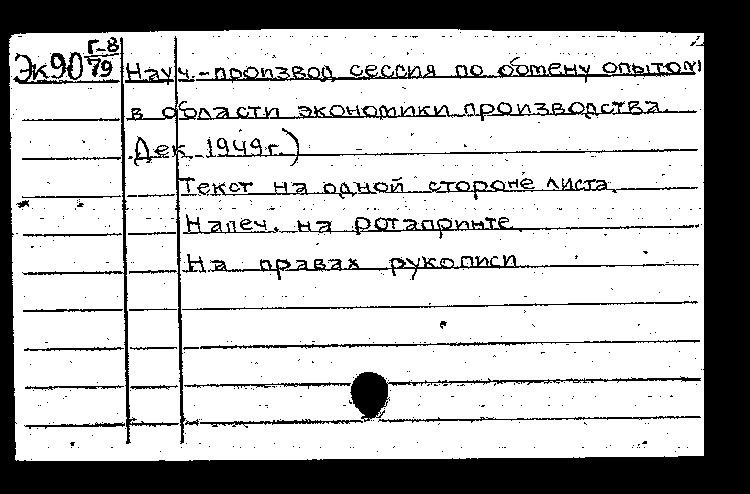 Эк90 Г-8/79 Науч.-производ сессия по обмену опытом
в области экономики производства.
Дек 1949г.)
Текст на одной стороне листа.
Напеч. на ротапринте.
На правах рукописи